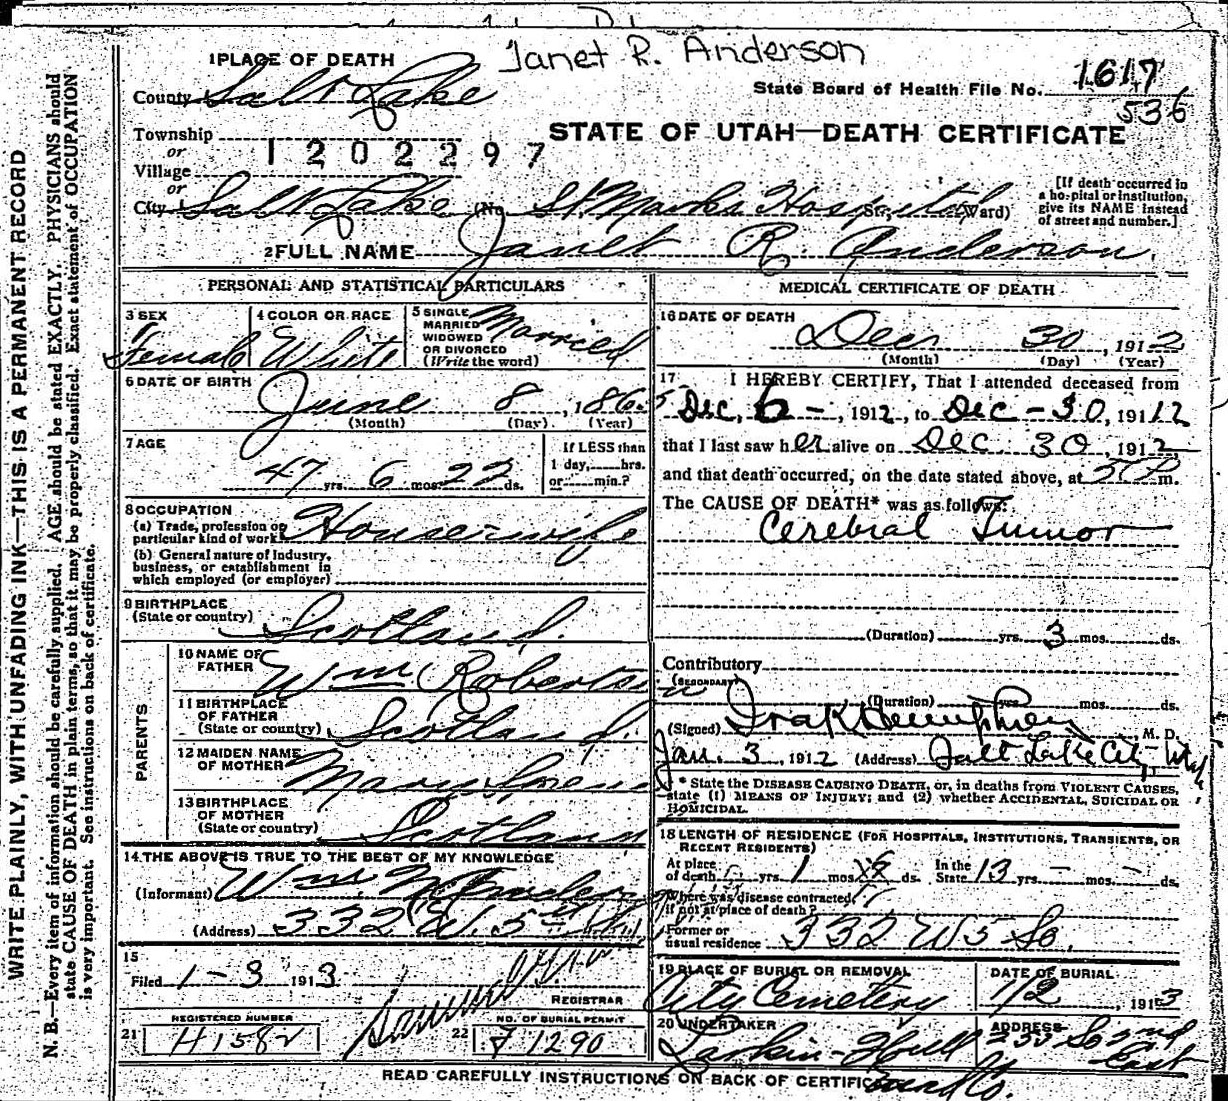 Janet R. Anderson
1 PLACE OF DEATH
County Salt Lake
State Board of Health File No. 1617
536
Township
or
1202297
Village
or
STATE OF UTAH—DEATH CERTIFICATE
City Salt Lake (No. St. Marks Hospital St.; Ward)
[If death occurred in a hospital or institution, give its NAME instead of street and number.]
2 FULL NAME Janet R. Anderson.
PERSONAL AND STATISTICAL PARTICULARS
3 SEX Female
4 COLOR OR RACE White
5 SINGLE MARRIED WIDOWED OR DIVORCED (Write the word) Married
6 DATE OF BIRTH June 8, 1865
(Month) (Day) (Year)
7 AGE 47 yrs. 6 mos. 22 ds.
If LESS than 1 day, hrs. or min.?
8 OCCUPATION
(a) Trade, profession or particular kind of work Housewife
(b) General nature of industry, business, or establishment in which employed (or employer)
9 BIRTHPLACE
(State or country) Scotland.
PARENTS
10 NAME OF FATHER Wm Robertson
11 BIRTHPLACE OF FATHER
(State or country) Scotland.
12 MAIDEN NAME OF MOTHER Mary
13 BIRTHPLACE OF MOTHER
(State or country) Scotland
14 THE ABOVE IS TRUE TO THE BEST OF MY KNOWLEDGE
(Informant) Wm.
(Address) 332 W. 5th
15
Filed 1-3 1913
Samuel
REGISTRAR
REGISTERED NUMBER
21 H1582
NO. OF BURIAL PERMIT
22 F 1290
MEDICAL CERTIFICATE OF DEATH
16 DATE OF DEATH
Dec 30, 1912
(Month) (Day) (Year)
17 I HEREBY CERTIFY, That I attended deceased from
Dec, 6 -, 1912, to Dec - 30, 191 12
that I last saw her alive on Dec 30 1912
and that death occurred, on the date stated above, at m.
The CAUSE OF DEATH* was as follows:
Cerebral Tumor
(Duration) yrs. 3 mos. ds.
Contributory
(SECONDARY)
(Duration) yrs. mos. ds.
(Signed) Ira K Humphrey M. D.
Jan. 3, 1912 (Address) Salt Lake City Utah
* State the DISEASE CAUSING DEATH, or, in deaths from VIOLENT CAUSES, state (1) MEANS OF INJURY; and (2) whether ACCIDENTAL, SUICIDAL OR HOMICIDAL.
18 LENGTH OF RESIDENCE (FOR HOSPITALS, INSTITUTIONS, TRANSIENTS, OR RECENT RESIDENTS)
At place of death yrs. 1 mos. ds. In the State 13 yrs. - mos. - ds.
Where was disease contracted, if not at place of death?
Former or usual residence 332 W 5 So.
19 PLACE OF BURIAL OR REMOVAL
City Cemetery
DATE OF BURIAL
1/2, 1913
20 UNDERTAKER
Larkin-Hull
ADDRESS
255 So 2nd East
READ CAREFULLY INSTRUCTIONS ON BACK OF CERTIFICATE
WRITE PLAINLY, WITH UNFADING INK—THIS IS A PERMANENT RECORD
N. B.—Every item of information should be carefully supplied. AGE should be stated EXACTLY. PHYSICIANS should
state CAUSE OF DEATH in plain terms, so that it may be properly classified. Exact statement of OCCUPATION
is very important. See instructions on back of certificate.